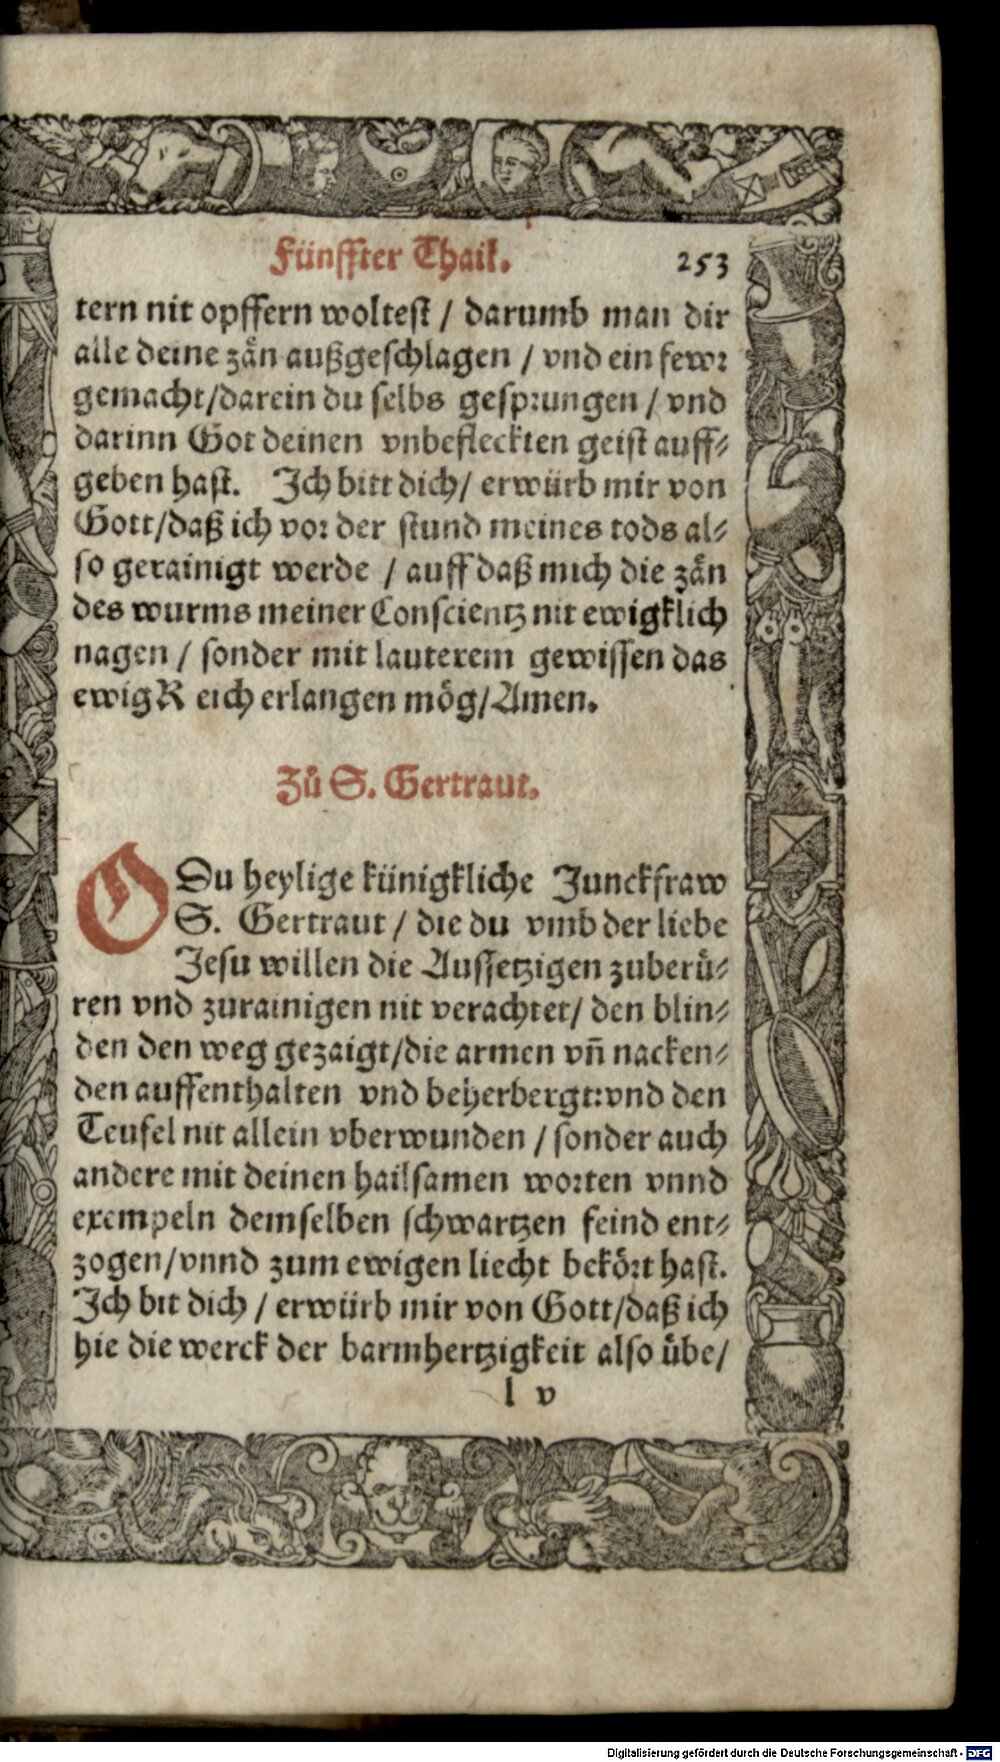 Fünffter Thail. 253
tern nit opffern woltest / darumb man dir
alle deine zän außgeschlagen / vnd ein fewr
gemacht/darein du selbs gesprungen / vnd
darinn Got deinen vnbefleckten geist auff⸗
geben hast. Ich bitt dich/ erwürb mir von
Gott/daß ich vor der stund meines tods al⸗
so gerainigt werde / auff daß mich die zän
des wurms meiner Conscientz nit ewigklich
nagen / sonder mit lauterem gewissen das
ewig Reich erlangen mög/Amen.
Zů S. Gertraut.
O Du heylige künigkliche Junckfraw
S. Gertraut / die du vmb der liebe
Jesu willen die Aussetzigen zuberů⸗
ren vnd zurainigen nit verachtet/ den blin⸗
den den weg gezaigt/die armen vñ nacken⸗
den auffenthalten vnd beherbergt:vnd den
Teufel nit allein vberwunden / sonder auch
andere mit deinen hailsamen worten vnnd
exempeln demselben schwartzen feind ent⸗
zogen/vnnd zum ewigen liecht bekört hast.
Ich bit dich / erwürb mir von Gott/daß ich
hie die werck der barmhertzigkeit also übe/
l v
Digitalisierung gefördert durch die Deutsche Forschungsgemeinschaft - DFG